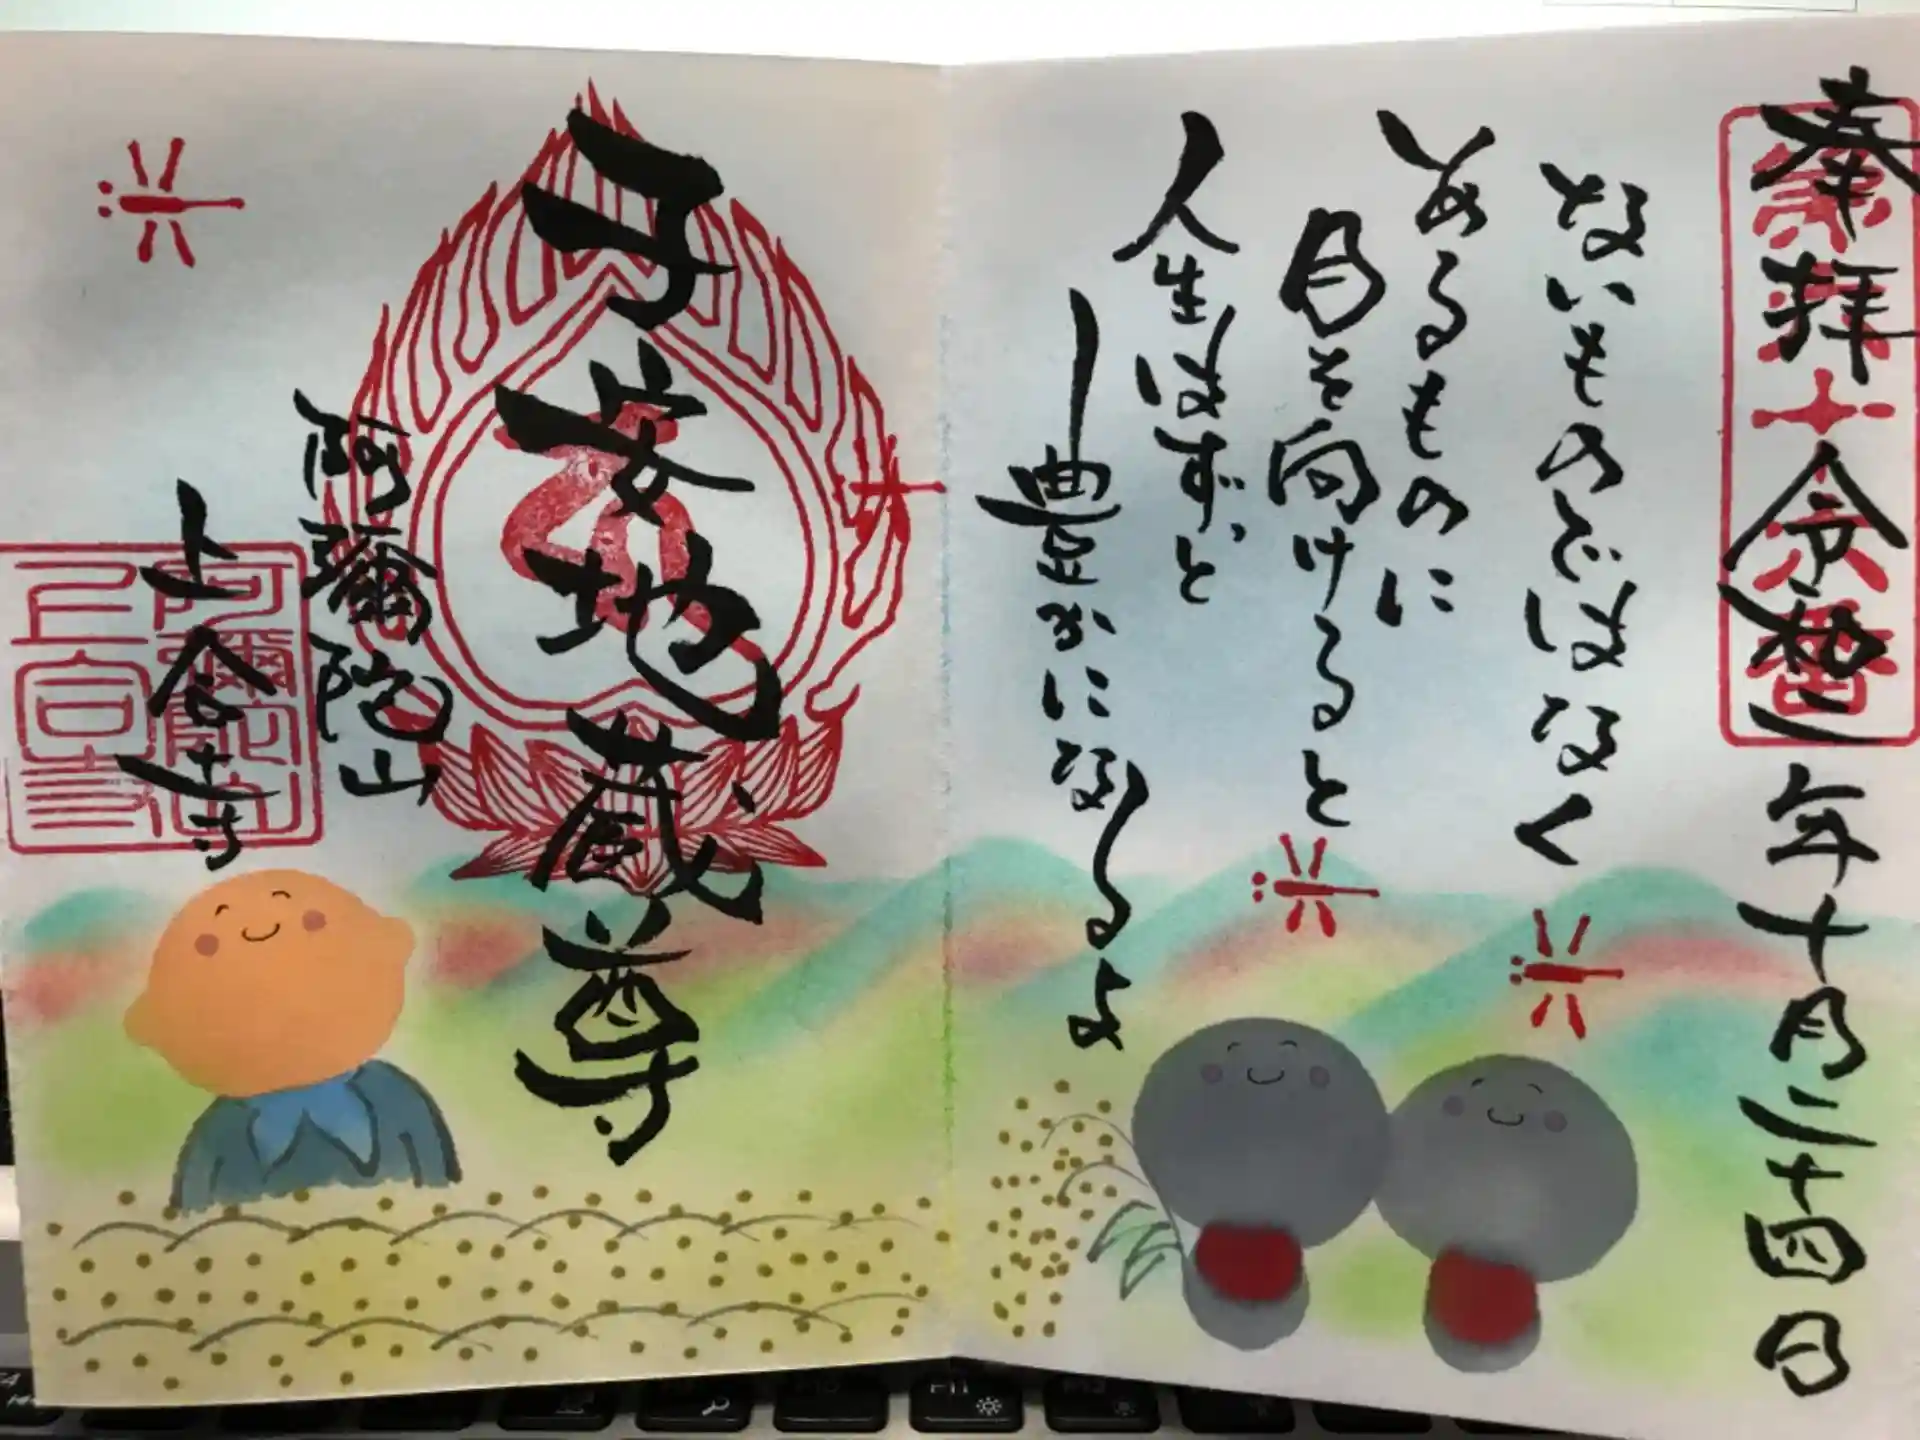 奉拝
令和二年十月二十四日
ないものではなく
あるものに
目を向けると
人生はずっと
豊かになるよ
子安地蔵尊
阿彌陀山
上合寺
F11